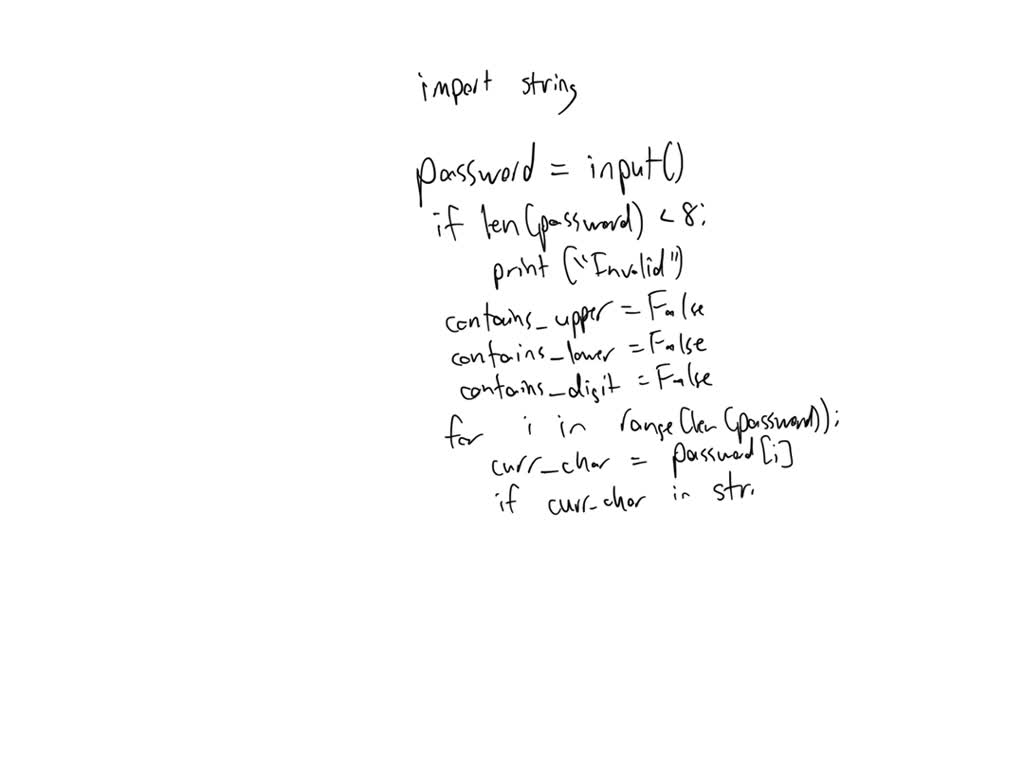 import string
password = input()
if len(password) < 8:
print ("Invalid")
contains_upper = False
contains_lower = False
contains_digit = False
for i in range(len(password)):
curr_char = password[i]
if curr_char in str.